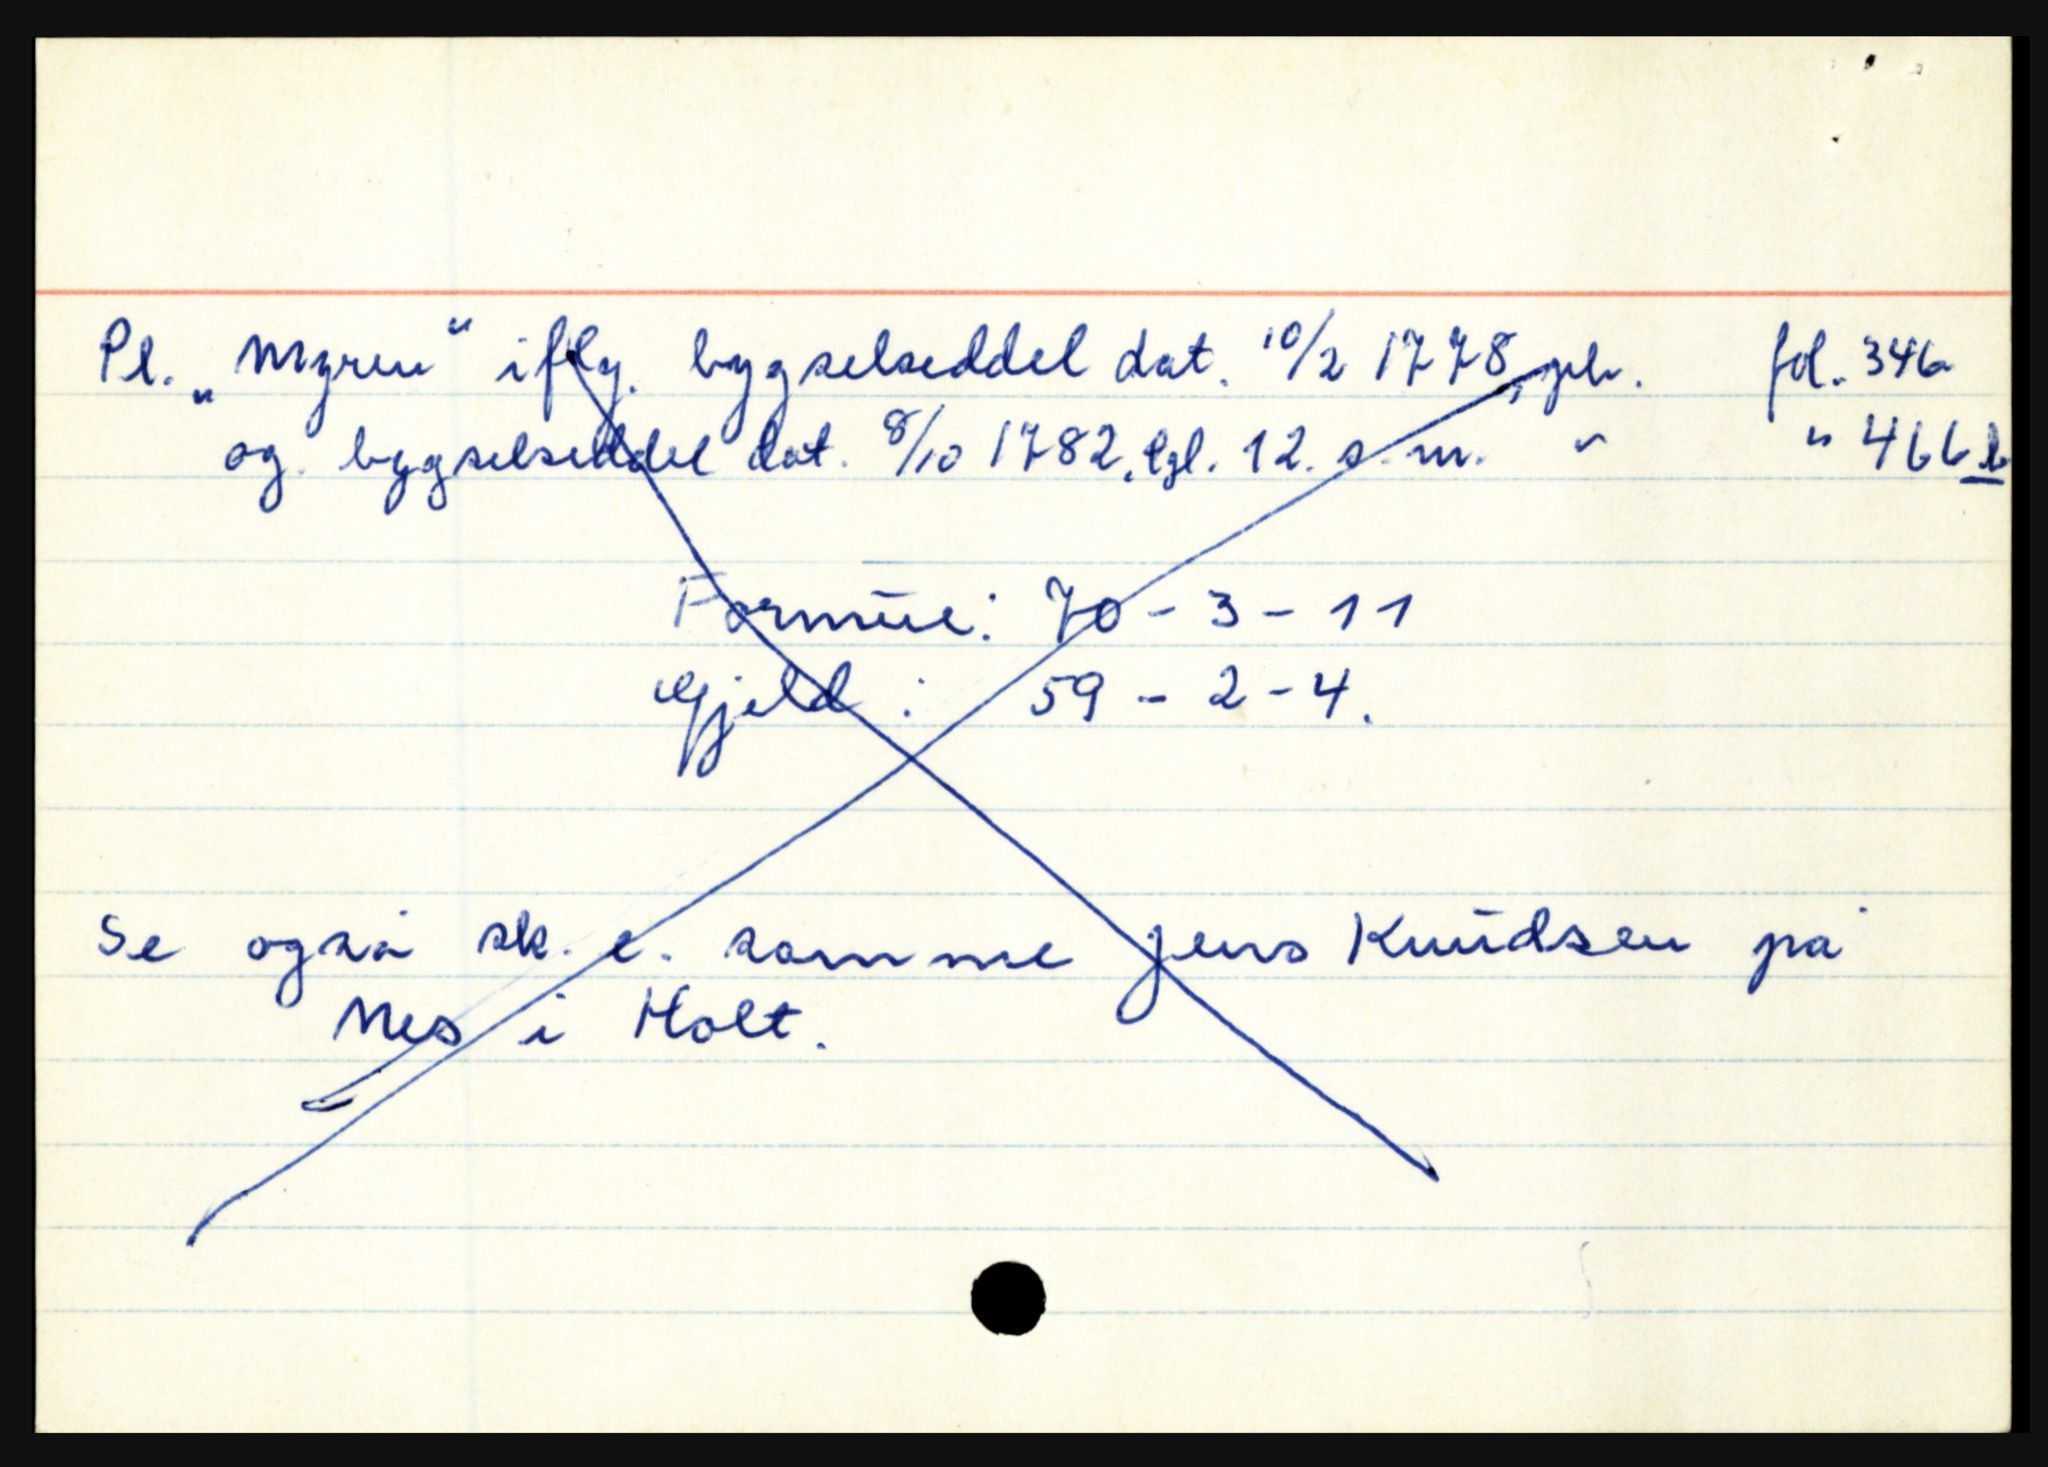 Pl. „Myren“ iflg. bygselseddel dat. 10/2 1778, pb. fol. 346
og bygselseddel dat. 8/10 1782, tgl. 12. s. m. " " 466 b
Formue: 70 - 3 - 11
Gjeld : 59 - 2 - 4.
Se også sk. e. samme Jens Knudsen på
Nes i Holt.